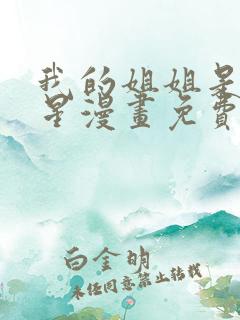 我的姐姐是
星漫畫免費
白金明
未经同意禁止转载